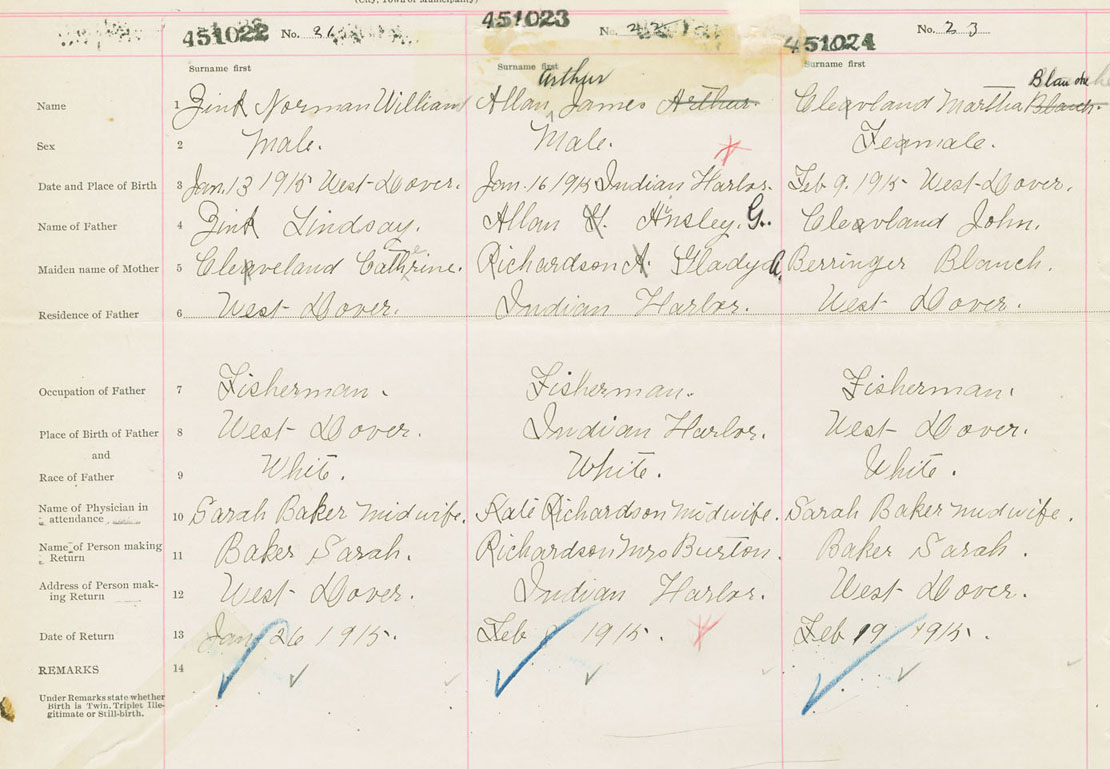 (City, Town or Municipality)
451022 No. 451023 No. 22 451024 No. 23
Surname first Surname first Surname first
Arthur Blanche
Name 1 Zink Norman William Allan James Arthur Cleavland Martha Blanch.
Sex 2 Male. Male. Feamale.
Date and Place of Birth 3 Jan. 13 1915 West-Dover. Jan. 16 1915 Indian Harbor. Feb 9. 1915 West-Dover.
Name of Father 4 Zink Lindsay. Allan Ansley. G. Cleavland John.
Maiden name of Mother 5 Cleaveland Cathrine. Richardson A. Gladys A. Berringer Blanch.
Residence of Father 6 West-Dover. Indian Harbor. West Dover.
Occupation of Father 7 Fisherman. Fisherman. Fisherman.
Place of Birth of Father 8 West-Dover. Indian Harbor. West-Dover.
and
Race of Father 9 White. White. White.
Name of Physician in
attendance 10 Sarah Baker Midwife. Kate Richardson Midwife. Sarah Baker Midwife.
Name of Person making
Return 11 Baker Sarah. Richardson Mrs Burton. Baker Sarah.
Address of Person mak-
ing Return 12 West-Dover. Indian Harbor. West-Dover.
Date of Return 13 Jan 26 1915. Feb 1915. Feb 19 1915.
REMARKS 14
Under Remarks state whether
Birth is Twin, Triplet Ille-
gitimate or Still-birth.